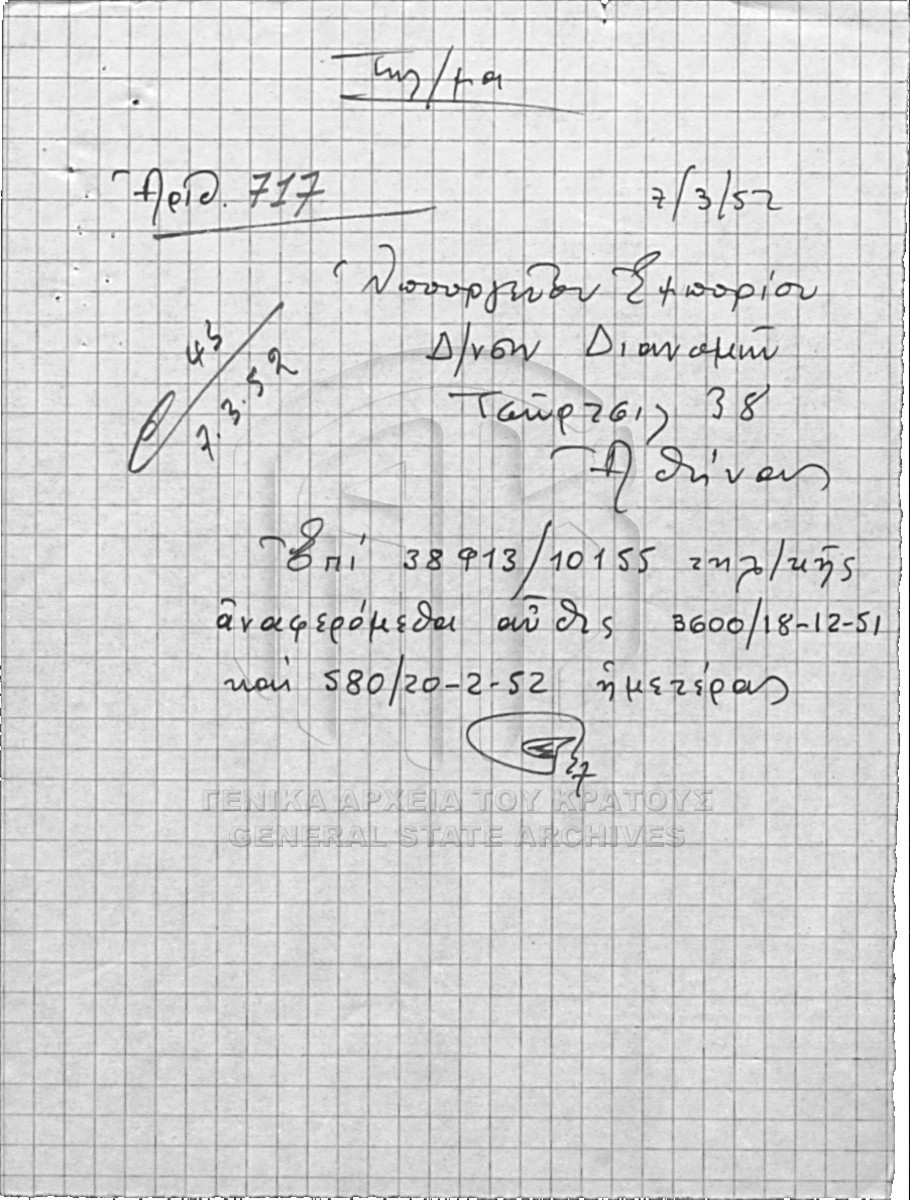 Τηλ/μα
Ἀριθ. 717
7/3/52
Ὑπουργεῖον Ἐμπορίου
Δ/νσιν Διανομῶν
38
Ἀθήνας
43
7.3.52
Ἐπί 38913/10155 τηλ/κῆς
ἀναφερόμεθα αὖθις 3600/18-12-51
καί 580/20-2-52 ἡμετέρας
ΓΕΝΙΚΑ ΑΡΧΕΙΑ ΤΟΥ ΚΡΑΤΟΥΣ
GENERAL STATE ARCHIVES